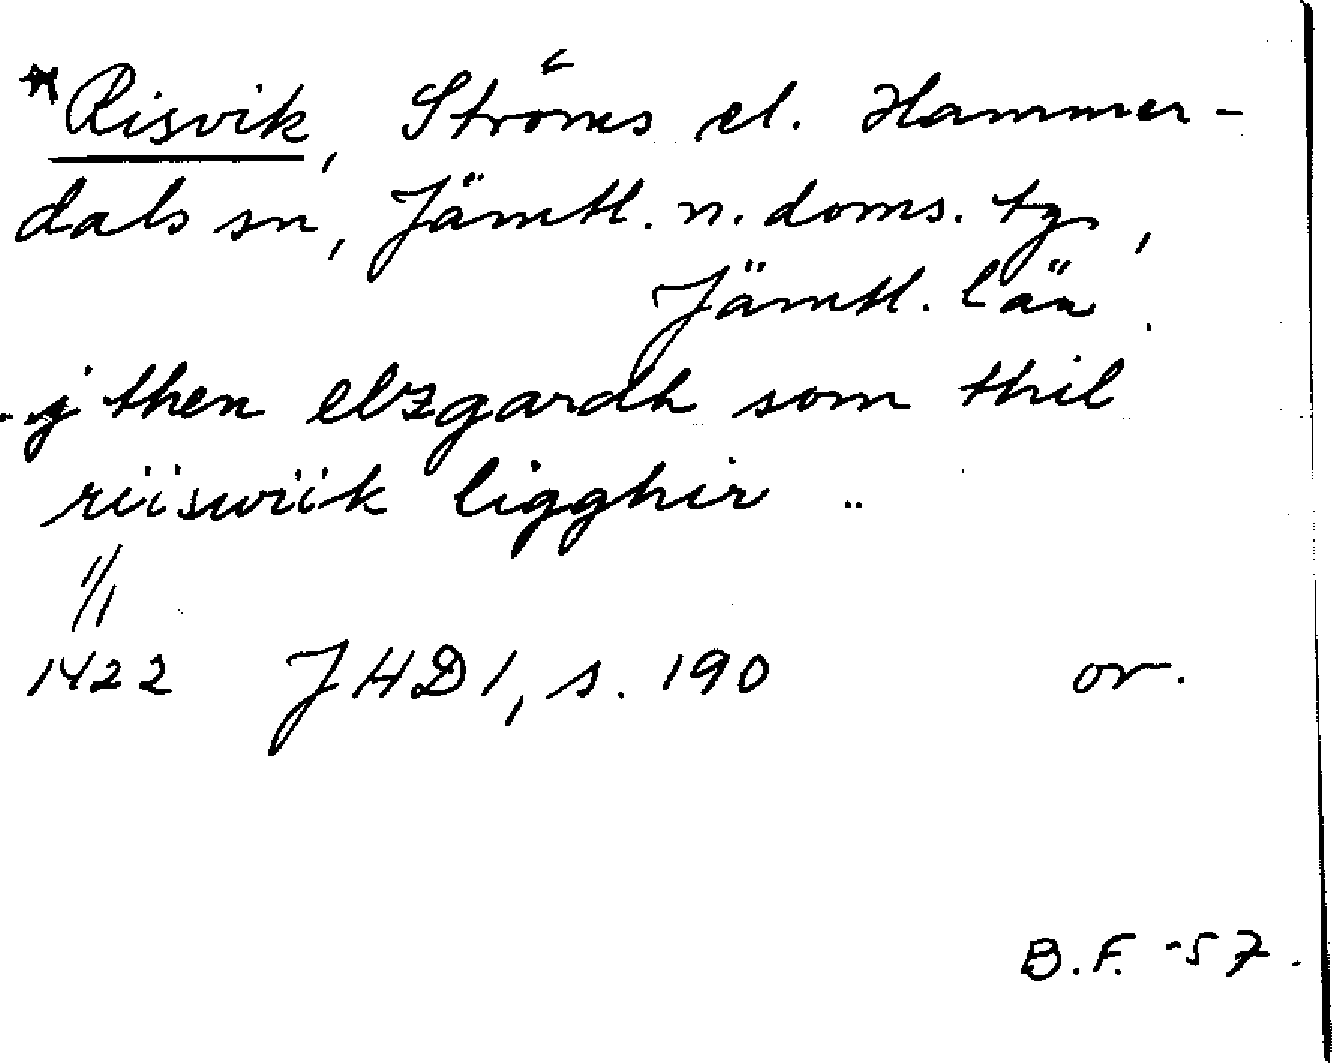 *Risvik, Ströms el. Hammer-
dals sn, Jämtl. n. doms. tg,
Jämtl. län.
. j then elzgardh som thil
riiswiik ligghir ..
1/1
1422 JHD1, s. 190 or.
B.F. -57.